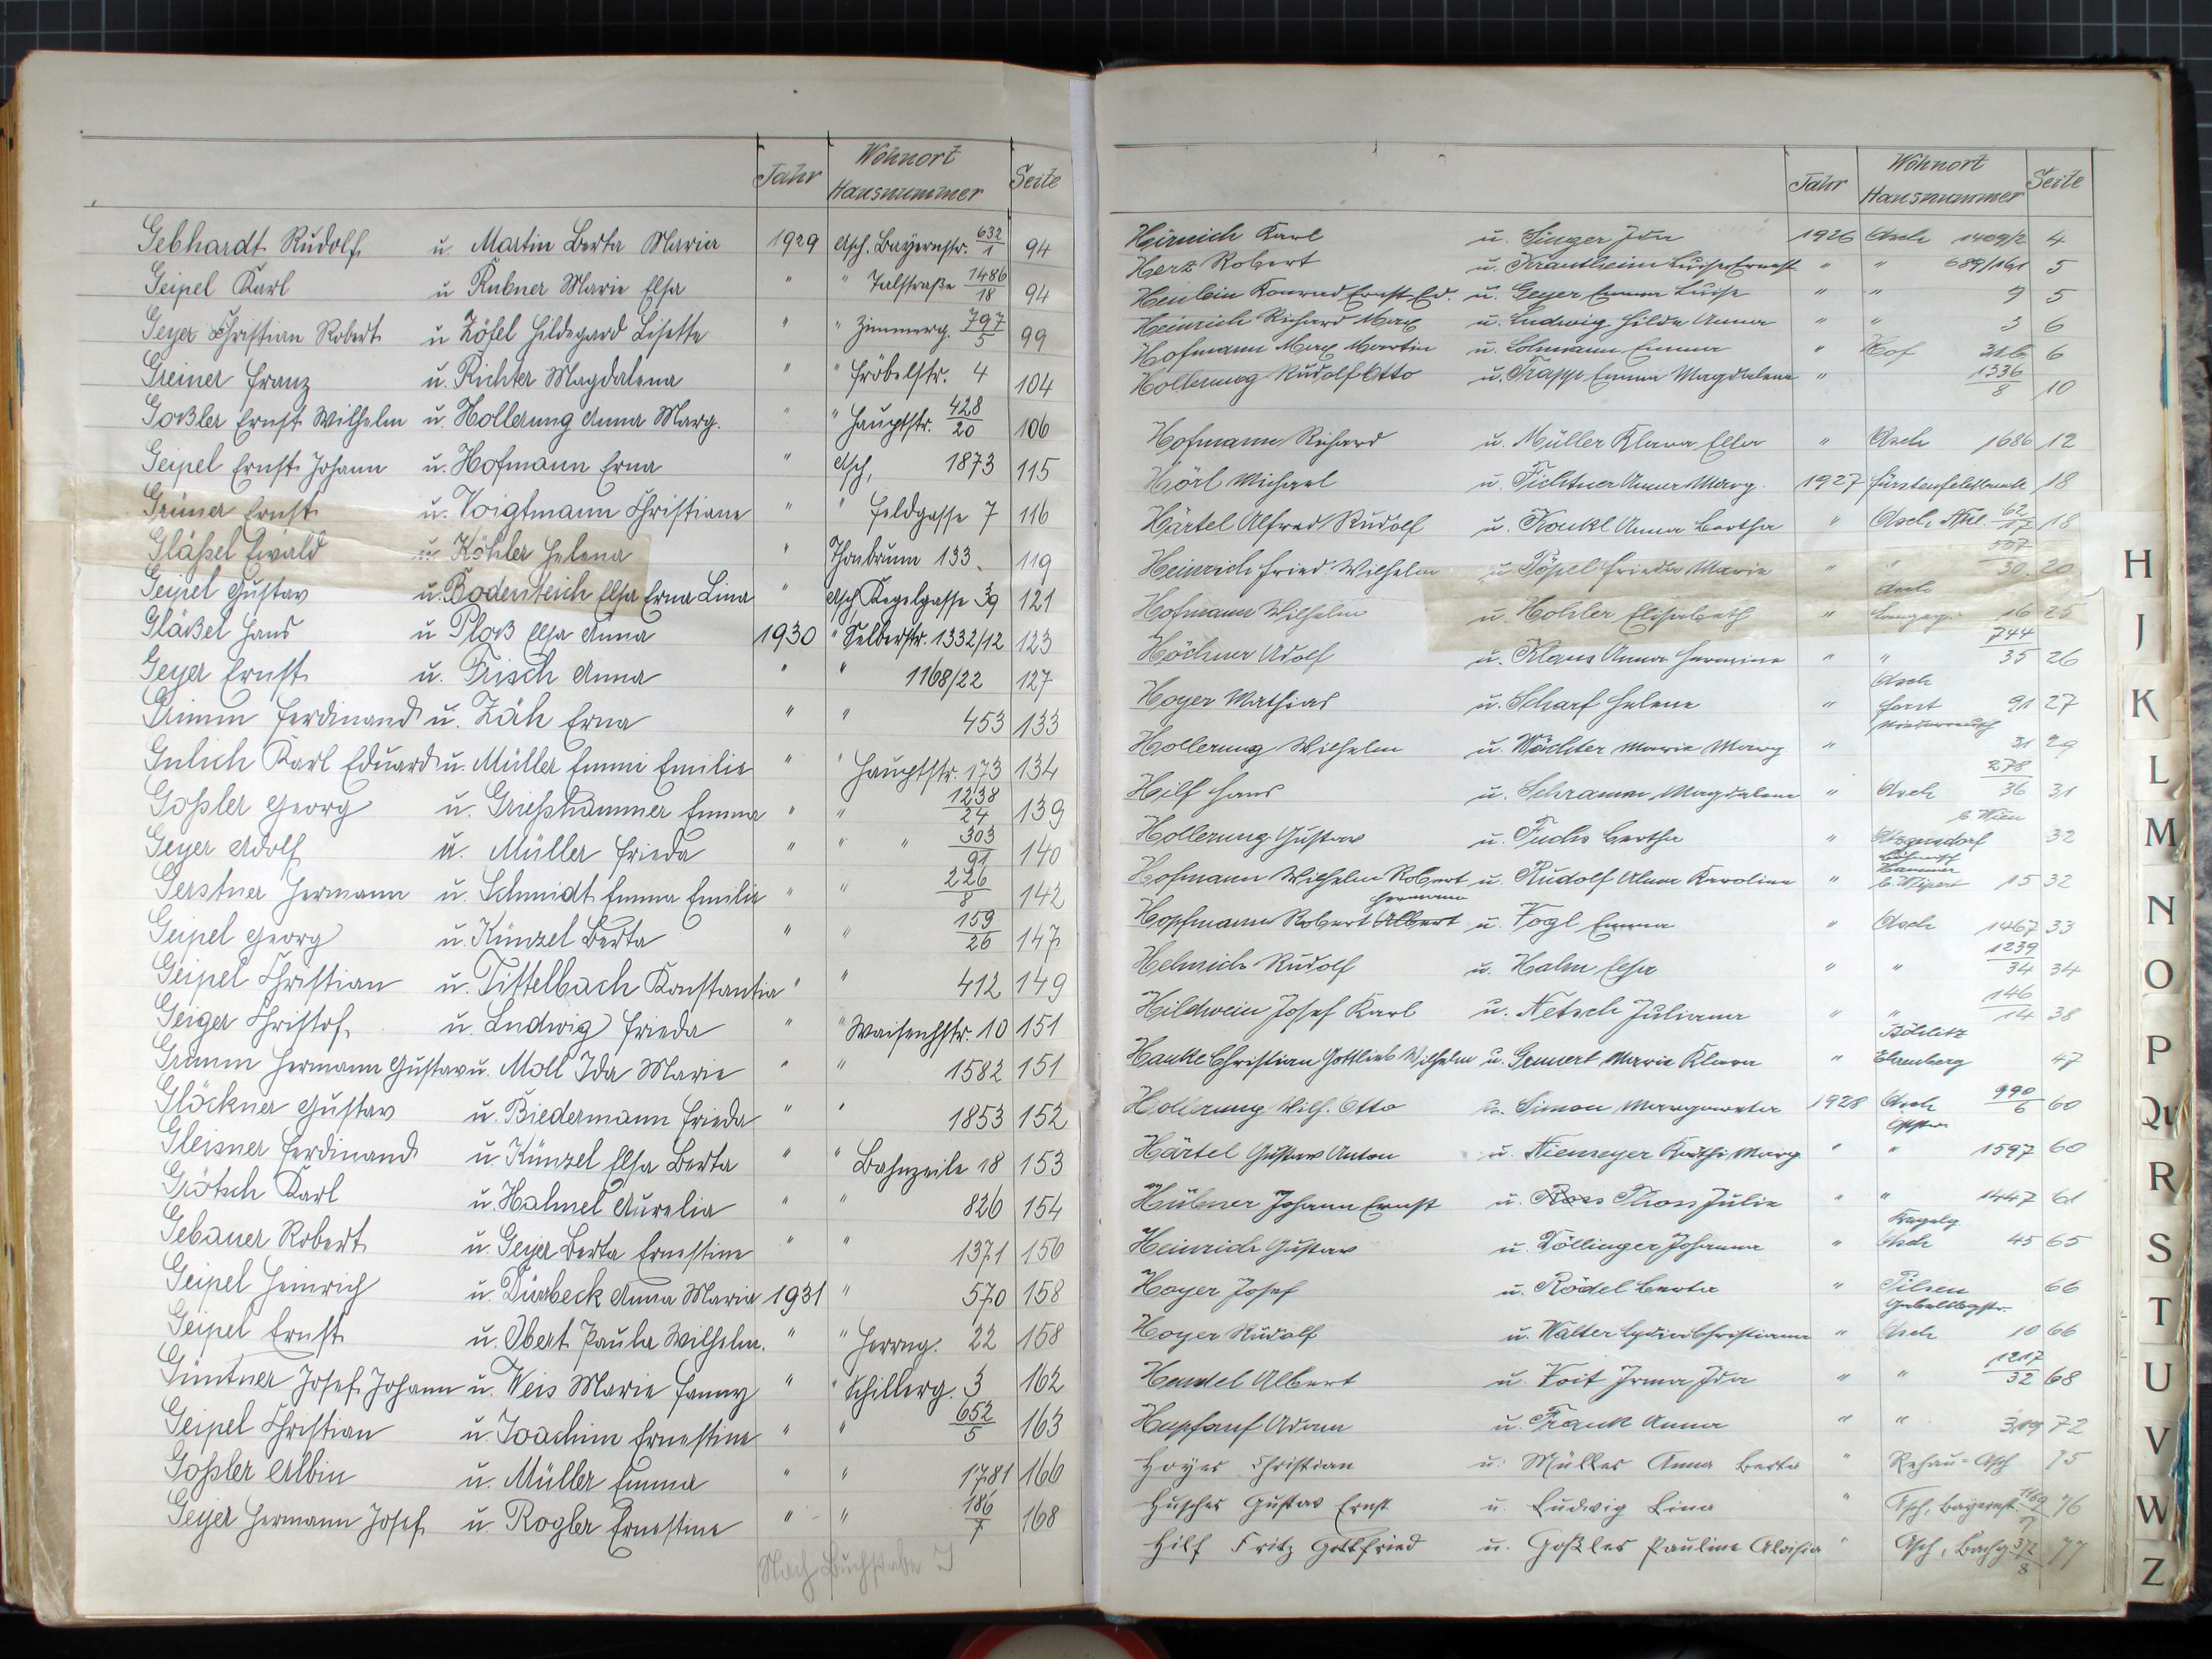 Jahr Wohnort Hausnummer Seite
Gebhardt Rudolf u. Martin Berta Maria 1929 Asch, Bayernstr. 632/1 94
Geipel Karl u Rubner Marie Elsa " " Talstraße 1486/18 94
Geyer Christian Robert u Zöfel Hildegard Lisette " " Zimmerg. 797/5 99
Greiner Franz u. Richter Magdalena " " Fröbelstr. 4 104
Goßler Ernst Wilhelm u. Hollerung Anna Marg. " " Hauptstr. 428/20 106
Geipel Ernst Johann u. Hofmann Erna " Asch, 1873 115
Grüner Ernst u. Voigtmann Christiane " " Feldgasse 7 116
Gläßel Ewald u. Köhler Helena " Thonbrunn 133 119
Geipel Gustav u. Bodenteich Elsa Erna Lina " Asch Kegelgasse 39 121
Gläßel Hans u Ploß Elsa Anna 1930 " Selberstr. 1332/12 123
Geyer Ernst u. Frisch Anna " " 1168/22 127
Grimm Ferdinand u. Zäh Erna " " 453 133
Gulich Karl Eduard u. Müller Emmi Emilie " " Hauptstr. 173 134
Goßler Georg u. Grießhammer Emma " " 1238/24 139
Geyer Adolf u. Müller Frieda " " " 303/91 140
Gerstner Hermann u. Schmidt Emma Emilie " " 226/8 142
Geipel Georg u. Künzel Berta " " 159/26 147
Geipel Christian u. Tittelbach Konstantia " " 412 149
Geiger Christof u. Ludwig Frieda " " Waisenhstr. 10 151
Grimm Hermann Gustav u. Moll Ida Marie " " 1582 151
Glöckner Gustav u. Biedermann Frieda " " 1853 152
Gleisner Ferdinand u. Künzel Elsa Berta " " Bahnzeile 18 153
Grötsch Karl u. Hahnel Aurelia " " 826 154
Gebauer Robert u. Geyer Berta Ernestine " " 1371 156
Geipel Heinrich u. Dürrbeck Anna Maria 1931 " 570 158
Geipel Ernst u. Obert Paula Wilhelm. " " Herrng. 22 158
Güntner Josef Johann u. Weis Marie Fanny " " Schillerg. 3 162
Geipel Christian u. Joachim Ernestine " " 652/5 163
Goßler Albin u. Müller Emma " " 1781 166
Geyer Hermann Josef u. Rogler Ernestine " " 186/7 168
Nach Buchstabe J
Jahr Wohnort Hausnummer Seite
Heinrich Karl u. Singer Ida 1926 Asch 1409/2 4
Herz Robert u. Krautheim Luise Ernest " " 689/161 5
Heinlein Konrad Ernst Ed. u. Geyer Emma Luise " " 9 5
Heinrich Richard Max u. Ludwig Hilda Anna " " 3 6
Hofmann Max Martin u. Lohmann Emma " Hof 316 6
Hollerung Rudolf Otto u. Trapp Emma Magdalena " 1336/8 10
Hofmann Richard u. Müller Klara Elsa " Asch 1686 12
Hörl Michael u. Fichtner Anna Marg. 1927 Fürstenfeldbruck 18
Härtel Alfred Rudolf u. Künkl Anna Bertha " Asch, 62/17 18
Heinrich Fried. Wilhelm u. Pöpel Frieda Marie " " 507/30 20
Hofmann Wilhelm u. Hohler Elisabeth " Asch Langeg. 16 25
Höchner Adolf u. Klaus Anna Hermine " " 744/35 26
Hoyer Mathias u. Scharf Helene " Asch Forst 91 27
Hollerung Wilhelm u. Wächter Marie Marg " Niederreuth 31 29
Hilf Hans u. Schramm Magdalena " Asch 278/36 31
Hollerung Gustav u. Fuchs Bertha " Atzgersdorf b. Wien 32
Hofmann Wilhelm Robert u. Rudolf Alma Karoline " Böhmisch Hammer b. Weipert 15 32
Hopfmann Robert Albert Hermann u. Vogl Emma " Asch 1467 33
Helmrich Rudolf u. Halm Elsa " " 1239/34 34
Hildwein Josef Karl u. Netsch Juliana " " 146/14 38
Hanke Christian Gottlieb Wilhelm u. Grunert Marie Klara " Böhlitz Ehrenberg 47
Hollerung Wilh. Otto u. Simon Margareta 1928 Asch 990/6 60
Härtel Gustav Anton u. Niemeyer Käthe Marg " " 1597 60
Hübner Johann Ernst u. Thoss Julie " " 1447 61
Heinrich Gustav u. Döllinger Johanna " Kegelg. Asch 45 65
Hoyer Josef u. Rödel Berta " Pilsen 66
Hoyer Rudolf u. Walter Lydia Christiana " Asch 10 66
Hendel Albert u. Voit Irma Ida " " 1217/32 68
Hupfauf Adam u. Frank Anna " " 72
Hoyer Christian u. Müller Anna Berta " Rehau-Asch 75
Huscher Gustav Ernst u. Ludwig Lina " Asch, Bayernst 76
Hilf Fritz Gottfried u. Goßler Pauline Aloisia " Asch, Bachg 372/8 77
H
J
K
L
M
N
O
P
Qu
R
S
T
U
V
W
Z